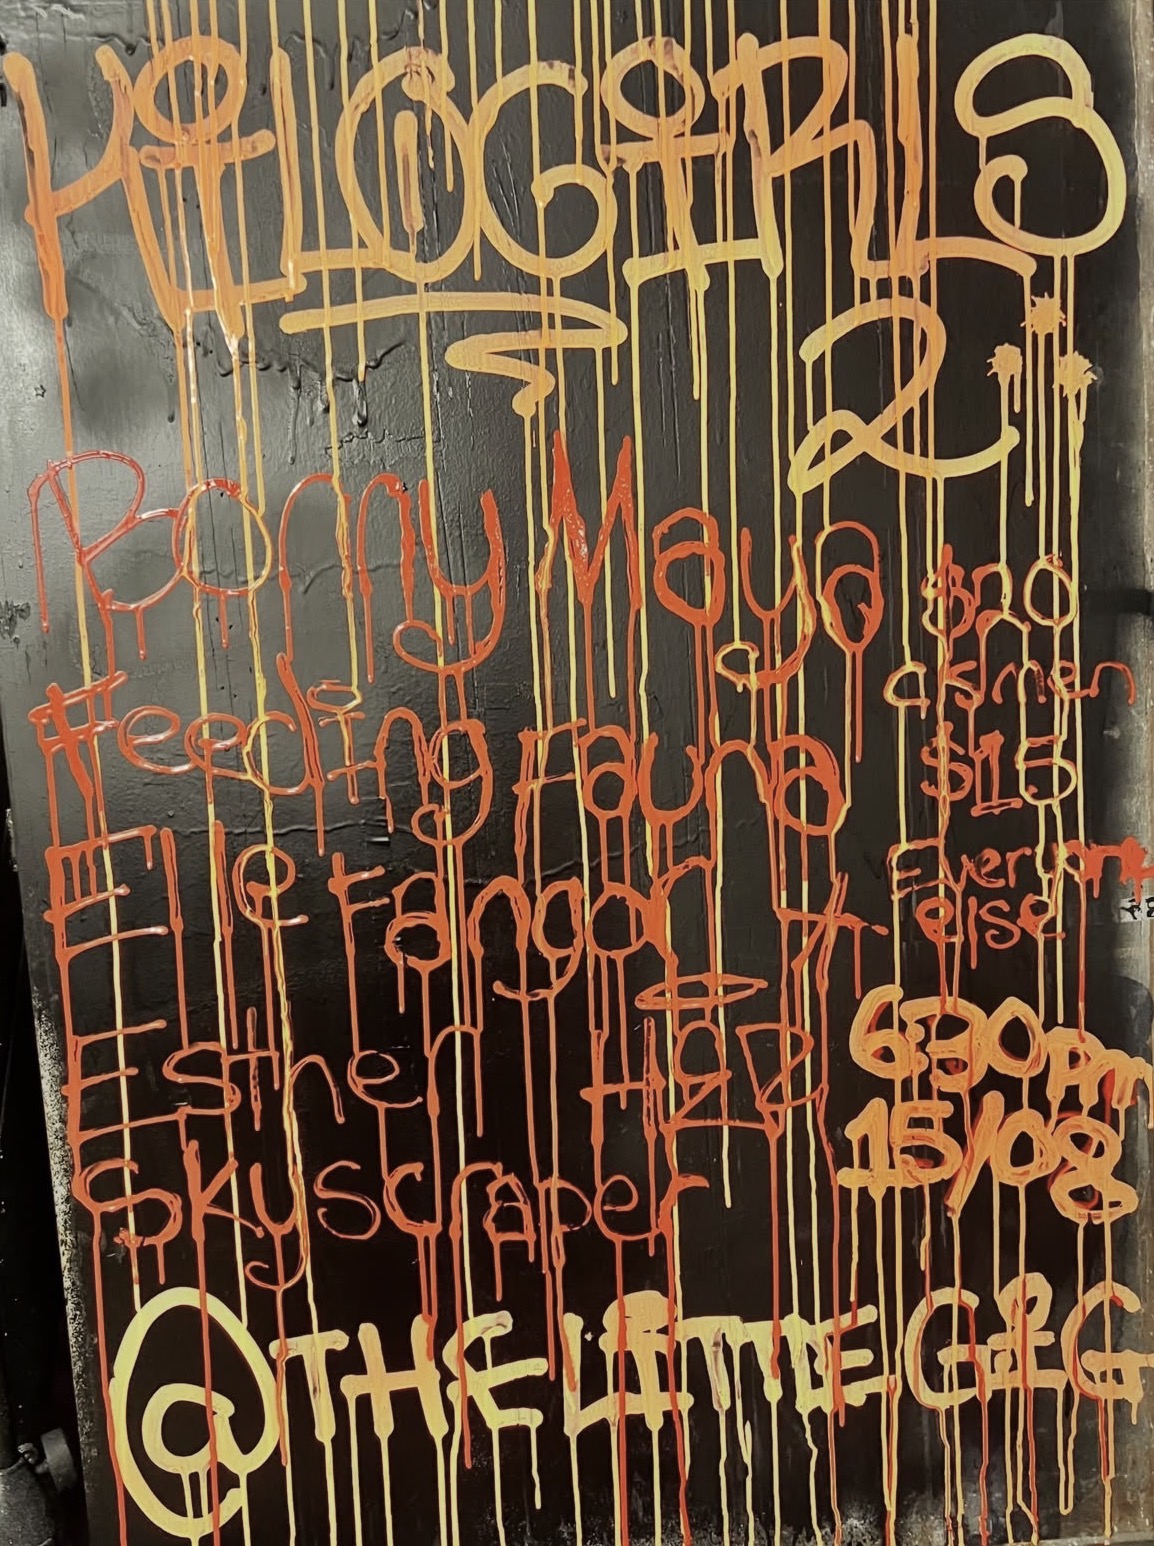 KiLOGiRLS
2
Bonny Maya
Feeding Fauna
Elle Fangor
Esther Haz
Skyscraper
$20
cismen
$15
Everyone
else
630pm
15/08
@THE LiTTLE GiG